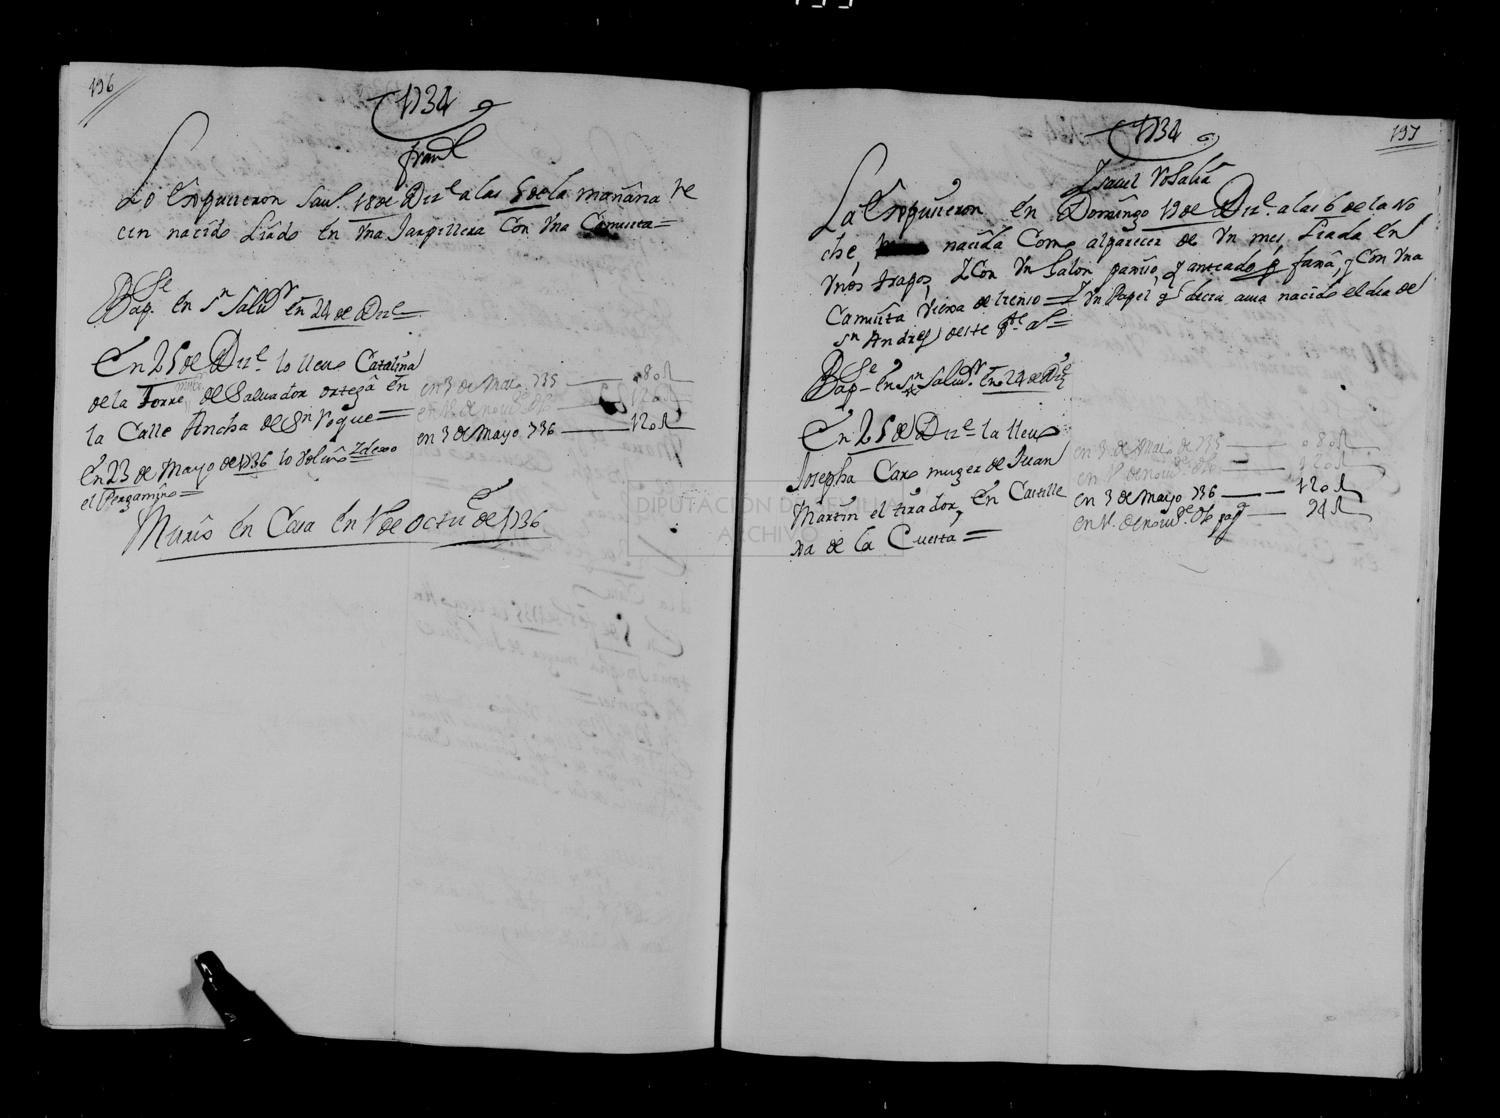 196
1734
franco
Lo Expusieron Sav.º 18 de Dize. a las 5 de la mañana re
cien nacido Liado En Vna Jarpillera Con Vna Camisita =
Bapse. en Sn Salvor en 24 de Dize. =
En 25 de Dize. lo lleuo Catalina
de la Torre muger de Saluador ortega en
la Calle Ancha de Sn Roque =
En 23 de Mayo de 1736 lo Voluio
el Pergamino =
Murio en Casa en V de octue. de 1736
en 3 de Mayo 735 — 080 R
120 R
en 3 de Mayo 736 — 120 R
197
1734
Isauel Rosalia
La Expusieron En Domingo 19 de Dize. a las 6 de la no
che, nacida Como al parecer de Vn mes, Liada En
Vnos trapos, Y Con Vn Calon y Con Vna
Camisita Vieja de lienso = Y Vn Papel qe decia auia nacido el dia de
Sn Andres deste Pte. año =
Bapse. en Sn Saluor. en 24 de Dize.
En 25 de Dize. la lleuo
Josepha Caro muger de Juan
Martin el tirador, en Castille
xa de la Cuesta =
en 3 de Maio de 735 — 080 R
en V de nouie. — 120 R
en 3 de Mayo 736 — 120 R
en V. de nouie. 736 pagu — 94 R
DIPUTACIÓN DE SEVILLA
ARCHIVO